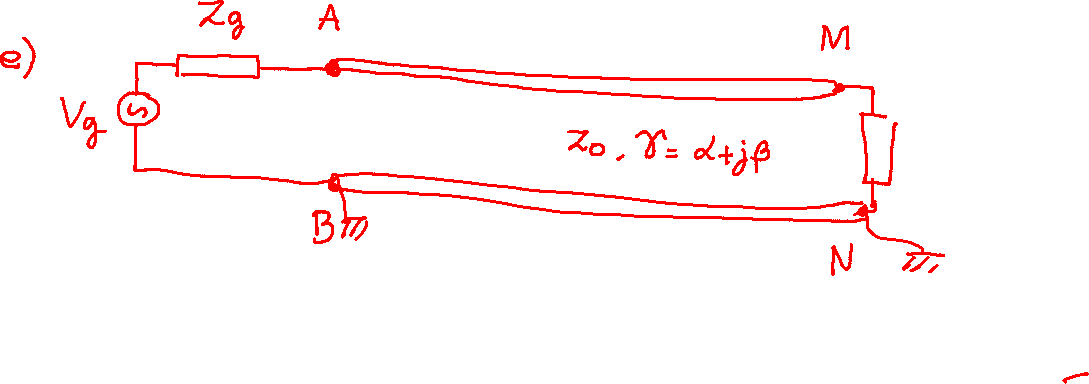 e)
Zg
A
M
Vg
Z₀, γ = α+jβ
B
N